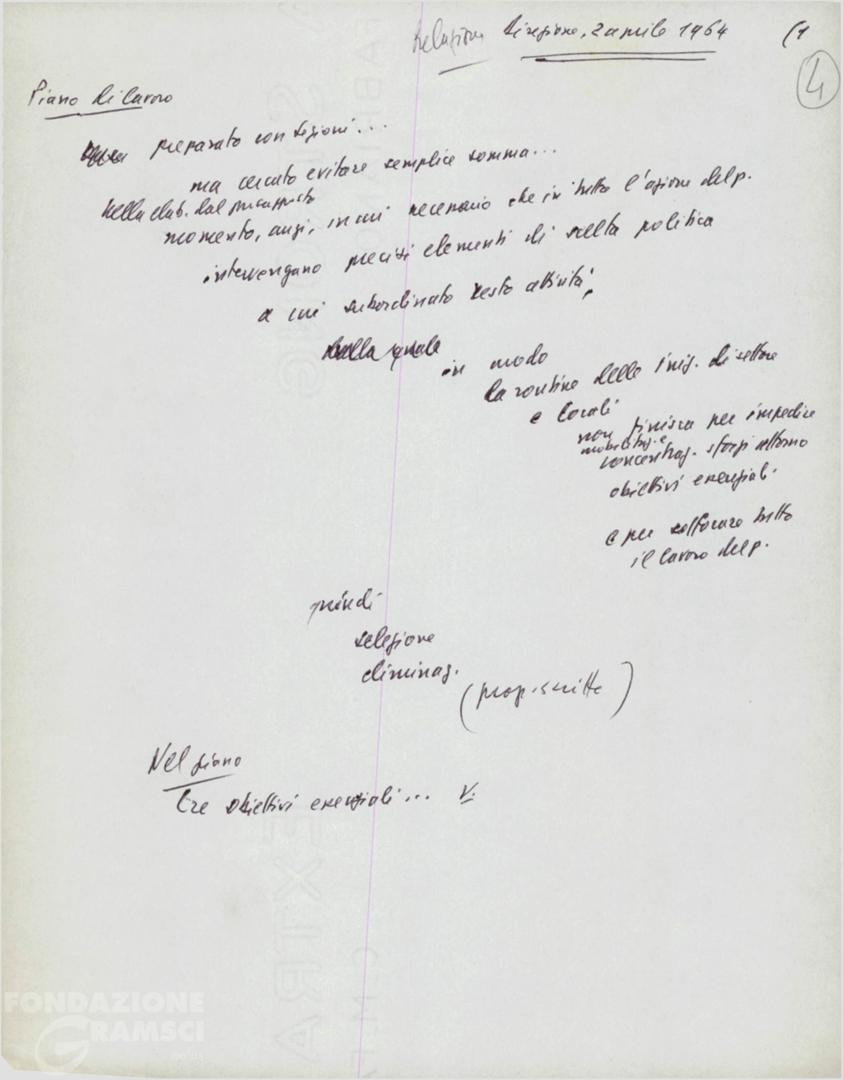 Relazione Direzione, 2 aprile 1964 (1
4
Piano di lavoro
preparato con sezioni...
ma cercato evitare semplice somma...
nella elab. dal presupposto
momento, anzi, in cui necessario che in tutta l'azione del p.
intervengano precisi elementi di scelta politica
a cui subordinato resto attività,
nella quale
in modo
la routine delle iniz. di settore
e locali
non finisca per impedire
mobilitaz. e
concentraz. sforzi attorno
obiettivi essenziali
e per soffocare tutto
il lavoro del p.
quindi
selezione
eliminaz.
(prop. scritte)
Nel piano
tre obiettivi essenziali... V.
FONDAZIONE
GRAMSCI